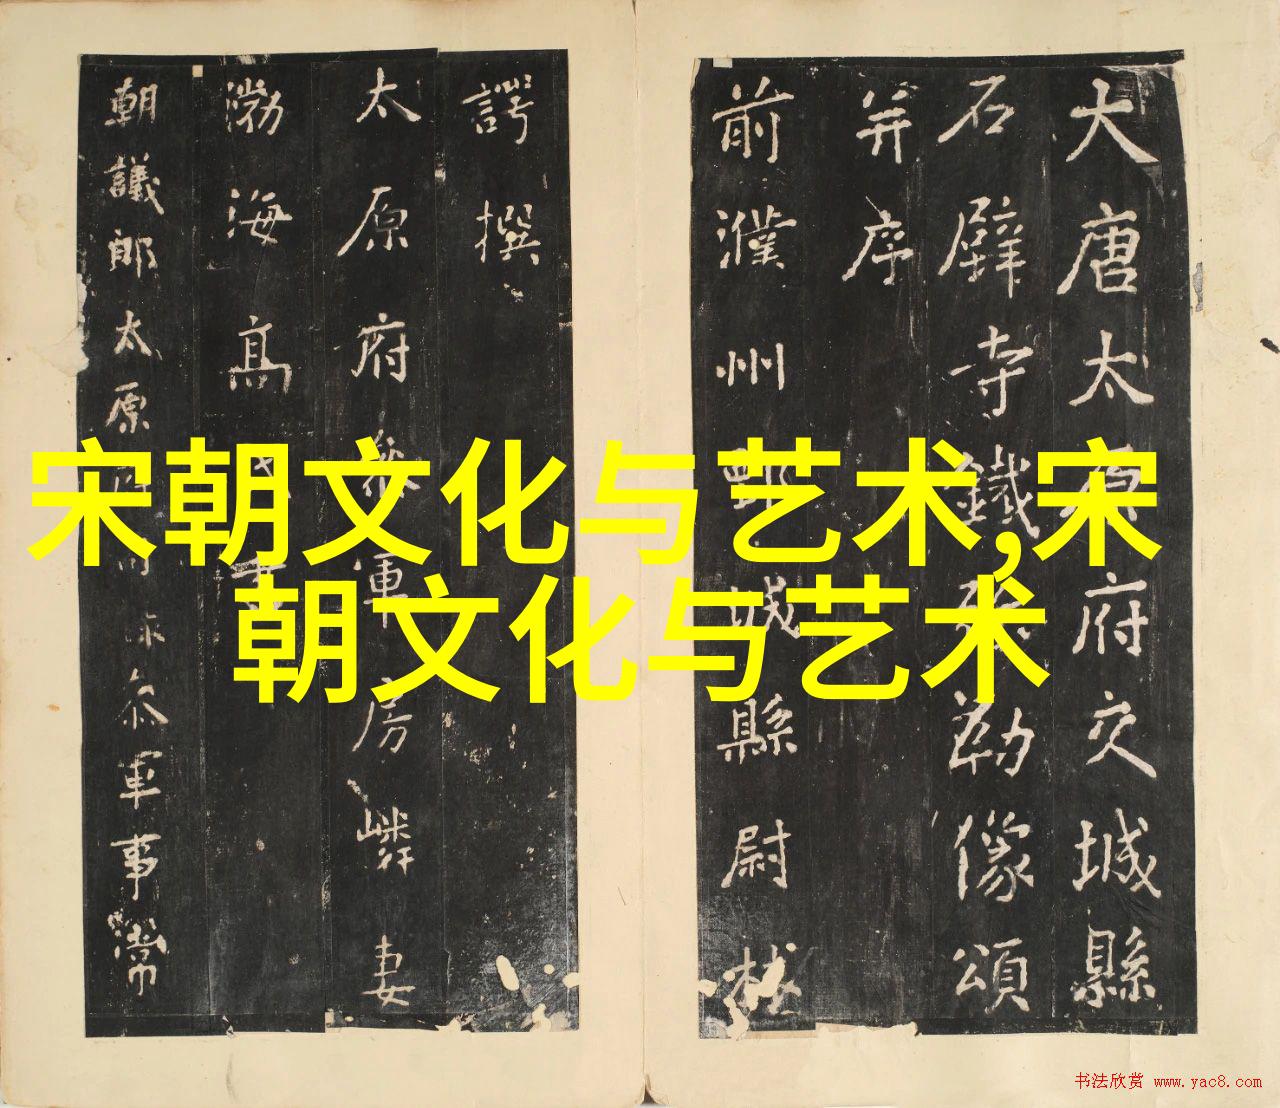 宋朝文化与艺术,宋
朝文化与艺术
大唐太原府交城縣
石壁寺鐵勒像頌
并序
前濮州鄄城縣尉林
諤撰
太原府參軍房嶙妻
渤海高
朝議郎太原參軍事常
书法欣赏 www.yac8.com